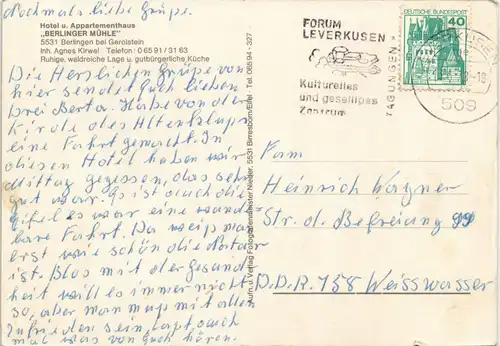 Nochmals liebe Grüße.
Hotel u. Appartementhaus
„BERLINGER MÜHLE"
5531 Berlingen bei Gerolstein
Inh. Agnes Kirwel Telefon 0 65 91 / 31 63
Ruhige, waldreiche Lage u. gutbürgerliche Küche
Die Herzlichen Grüße von
hier sendet Euch lieben
Drei Berta. Habe von der
Kirche des Altenklups
eine Fahrt gemacht. In
diesen Hotel haben wir
Mittag gegessen, das sehr
gut war. Es ist auch die
Eifel es war eine wunder
bare Fahrt. Da weiß man
erst wie schön die Natur
ist. Blos mit der Gesund
heit will es immer nicht
so, aber man muß mit allen
Zufrieden sein, laßt auch
mal was von Euch hören.
Aufn. u. Verlag Fotografenmeister Nieder, 5531 Birresborn/Eifel Tel. 06594 - 327
FORUM
LEVERKUSEN
Kulturelles
und geselliges
Zentrum
TAGUNGEN
DEUTSCHE BUNDESPOST
40
509
Fam
Heinrich Wagner
Str. d. Befreiung 99
D.D.R. 758 Weisswasser